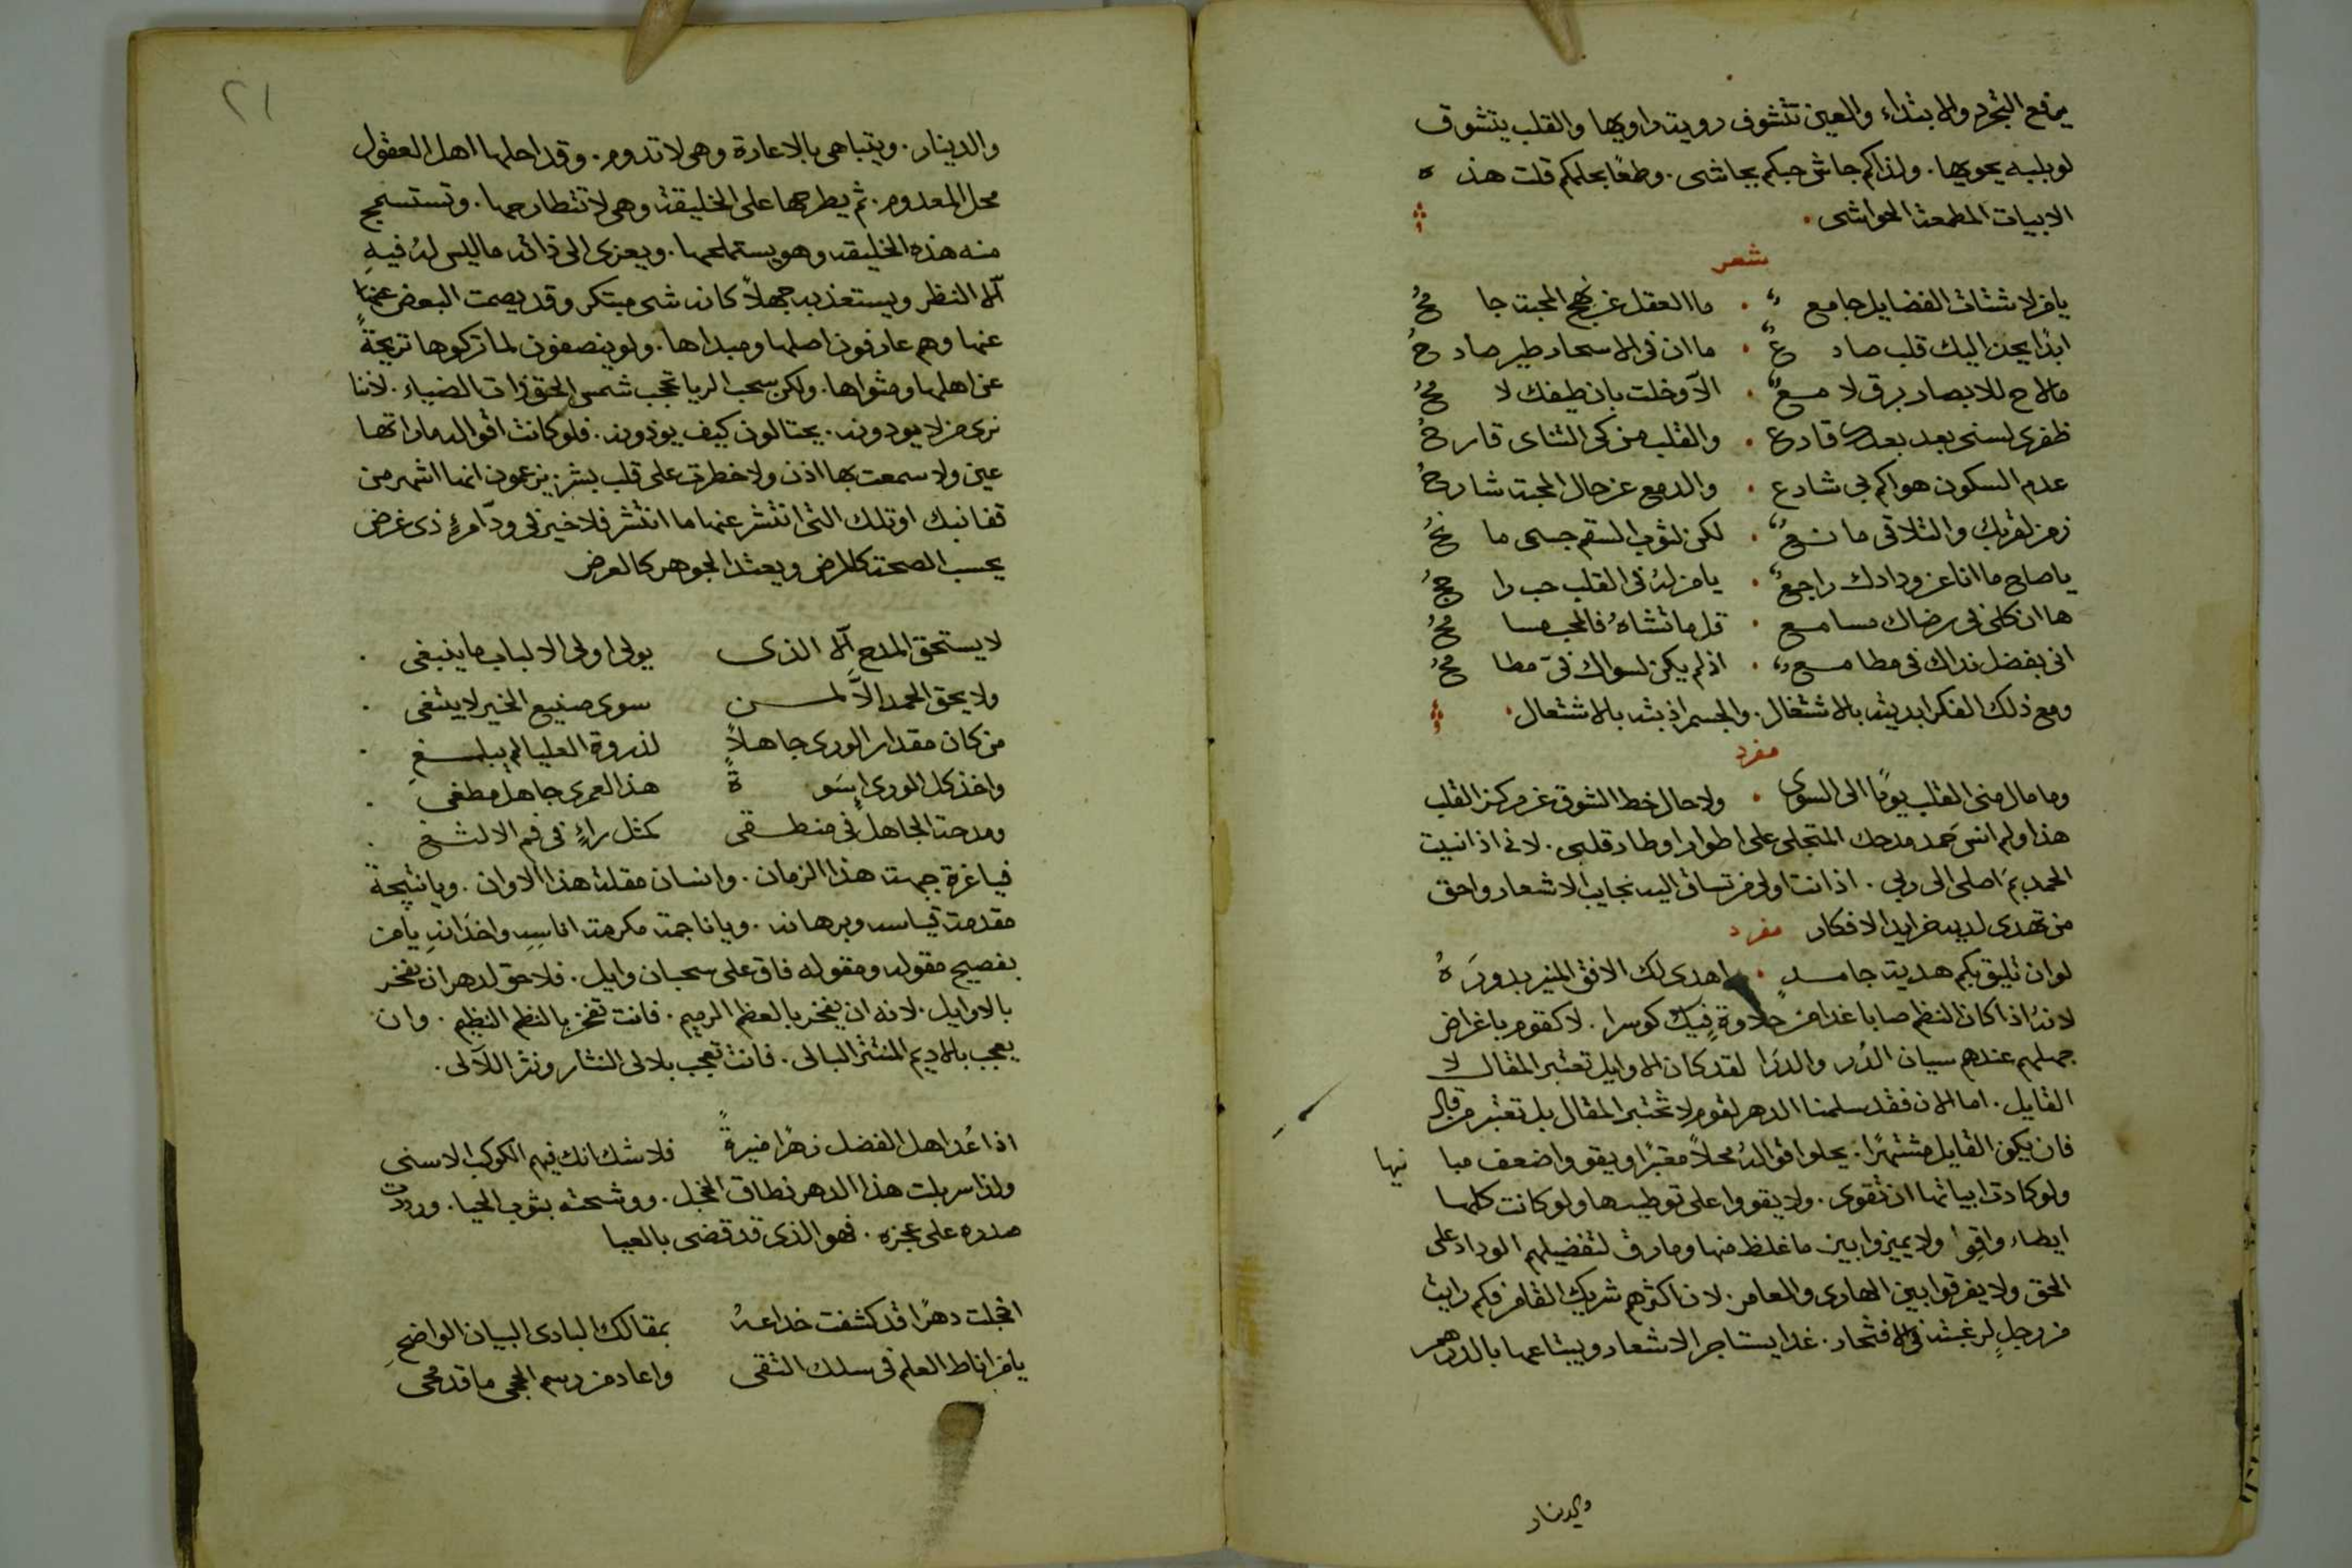 يرفع التجرم والابتداء والعين تتشوف روية راويها والقلب يتشوق
لوبلبه يحويها. ولذاكم جاش حبكم بجاشى. وطمعًا بحلمكم قلت هذه
الابيات المطمعة الحواشى.
شعر
يا من لاشتات الفضايل جامع . ما العقل عن نهج المحبة جامحُ
ابدًا يحن اليك قلب صادع . ما ان فى الاسحار طير صادحُ
مالاح للابصار برق لامعٌ . الّا وخلت بان طيفك لامحُ
ظفرى لسنى بعد بعدك قادع . والقلب من كى التناى قارحُ
عدم السكون هواكم بى شارع . والدمع عن حال المحبة شارحُ
زمن لقربك والتلاقى مانعٌ . لكن لثوب السقم جسمى مانحُ
يا صاح ما انا عن ودادك راجعٌ . يا من لهُ فى القلب حب راجحُ
ها ان كلى فى رضاك مسامع . قل ما تشاهُ فالمحب مسامحُ
انى بفضل نداك فى مطامع . اذ لم يكن لسواك فىّ مطامحُ
ومع ذلك الفكر ابديته بالاشتغال. والجسم اذبته بالاشتعال.
مفرد
وما مال منى القلب يومًا الى السوى . ولا حال خط الشوق عن مركز القلب
هذا ولم انسَ حمد مدحك المتجلى على اطوار اوطار قلبى. لانى اذا نسيت
الحمد بمَ اصلى الى ربى. اذ انت اولى من تساق اليه نجايب الاشعار واحق
من تهدى لديه خرايد الافكار مفرد
لو ان تليق بكم هدية جامدٍ . اهدى لك الافق المنير بدورَهُ
لانهُ اذا كان النظم صابا غدا من حلاوة فيك كوسرا. لا كقوم باغراض
جهلهم عندهم سيان الدُر والدرَا لقد كان الاوايل تعتبر المقال لا
القايل. اما الان فقد سلمنا الدهر لقوم لا تختبر المقال بل تعتبر من قال
فان يكون القايل مشتهرًا. يحلوا اقوالهُ محلاً معتبرًا ويقووا ضعف مبانيها
ولو كادت ابياتها ان تقوى. ولا يقووا على توطيدها ولو كانت كلها
ايطاء واقوا ولا يميزوا بين ما غلظ منها وما رق لتفضيلهم الوداد على
الحق ولا يفرقوا بين الهادى والعامر. لان اكثرهم شريك القامر فكم رايت
من رجلٍ لرغبته فى الافتخار. غدا يستاجر الاشعار ويبتاعها بالدرهم
والدينار
٢١
والدينار. ويتباهى بالاعارة وهى لا تدوم. وقد احلها اهل العقول
محل المعدوم. ثم يطرحها على الخليقة وهى لا تنطارحها. وتستسمج
منه هذه الخليقه وهو يستملحها. ويعزى الى ذاته ما ليس لهُ فيهِ
الا النظر ويستعذبه جهلاً كانه شى مبتكر وقد يصمت البعض
عنها وهم عارفون اصلها ومبداها. ولو ينصفون لما تركوها تريحةً
عن اهلها ومثواها. ولكن سحب الريا تحجب شمس الحق ذات الضياء. لاننا
نرى من لا يودونه. يحتالون كيف يوذونه. فلو كانت اقواله ما راتها
عين ولا سمعت بها اذن ولا خطرت على قلب بشر. يزعمون انها اشهر من
قفا نبك او تلك التى انتشر عنها ما انتشر فلا خير فى ودّ امرءٍ ذى غرض
يحسب الصحة كالمرض ويعتد الجوهر كالعرض
لا يستحق المدح الا الذى يولى اولى الالباب ما ينبغى .
ولا يحق الحمد الاَّ لمن سوى صنيع الخير لا يبتغى .
من كان مقدار الورى جاهلاً لذروة العليا لم يبلغِ .
واخذ كل الورى اسوةً هذا لعمرى جاهل مطغى .
ومدحة الجاهل فى منطقى كمثل راءٍ فى فم الالثغ .
فيا غرة جبهة هذا الزمان. وانسان مقلة هذا الاوان. ويا نتيجة
مقدمة قياسه وبرهانه. ويا ناجمة مكرمة اناسهِ واخدَانهِ يا من
بفصيح مقوله ومقوله فاق على سحبان وايل. فلا حق لدهر ان يفخر
بالاوايل. لانه ان يفخر بالعظم الرميم. فانت تفخر بالنظم النظيم. وان
يعجب بالاديم المنتثر البالى. فانت تعجب بلالى النثار ونثر اللآلى.
اذا عُد اهل الفضل زهرًا منيرةً فلا شك انك فيهم الكوكب الاسنى
ولذا سربلت هذا الدهر نطاق الخجل. ووشحته بثوب الحيا. ورددت
صدره على عجزه. فهو الذى قد قضى بالعيا
اخجلت دهرًا قد كشفت خداعهُ بمقالك البادى البيان الواضحِ
يا من اناط العلم فى سلك التقى واعاد من رسم الحجى ما قد محى